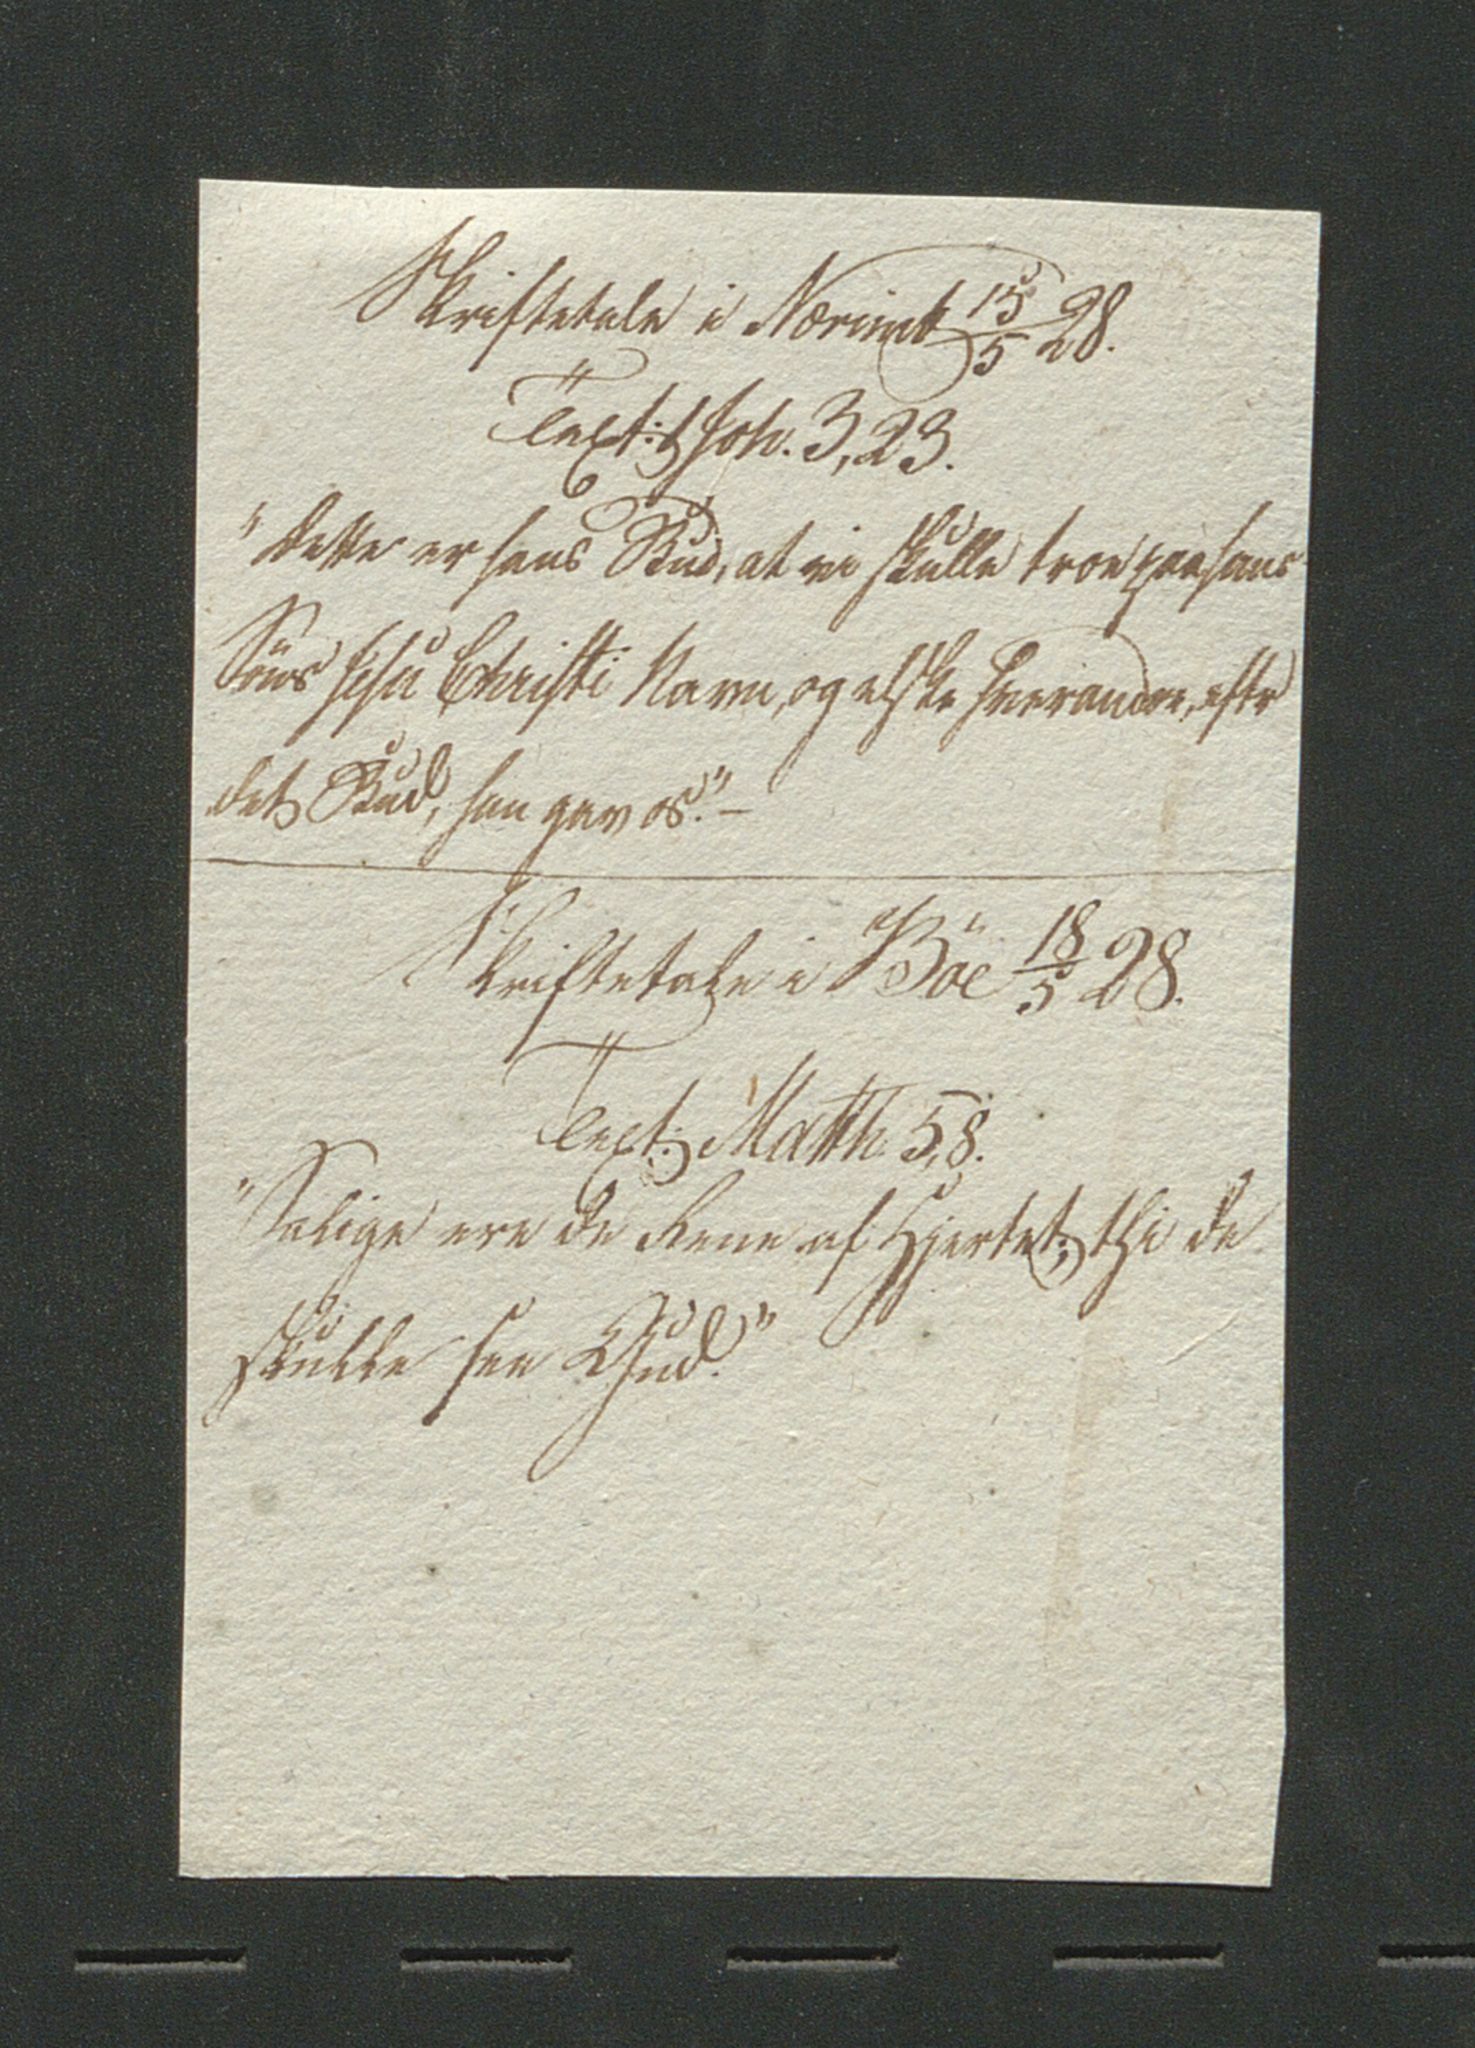 Skriftetale i Nærimb 15/5 28.
Text: 1 Joh. 3,23.
"Dette er hans Bud, at vi skulle troe paa hans
Søns Jesu Christi Navn, og elske hverandre, efter
det Bud, han gav os." –
Skriftetale i Böe 18/5 28.
Text: Matth. 5,8.
"Salige ere de Rene af Hjertet; thi de
skulle see Gud."